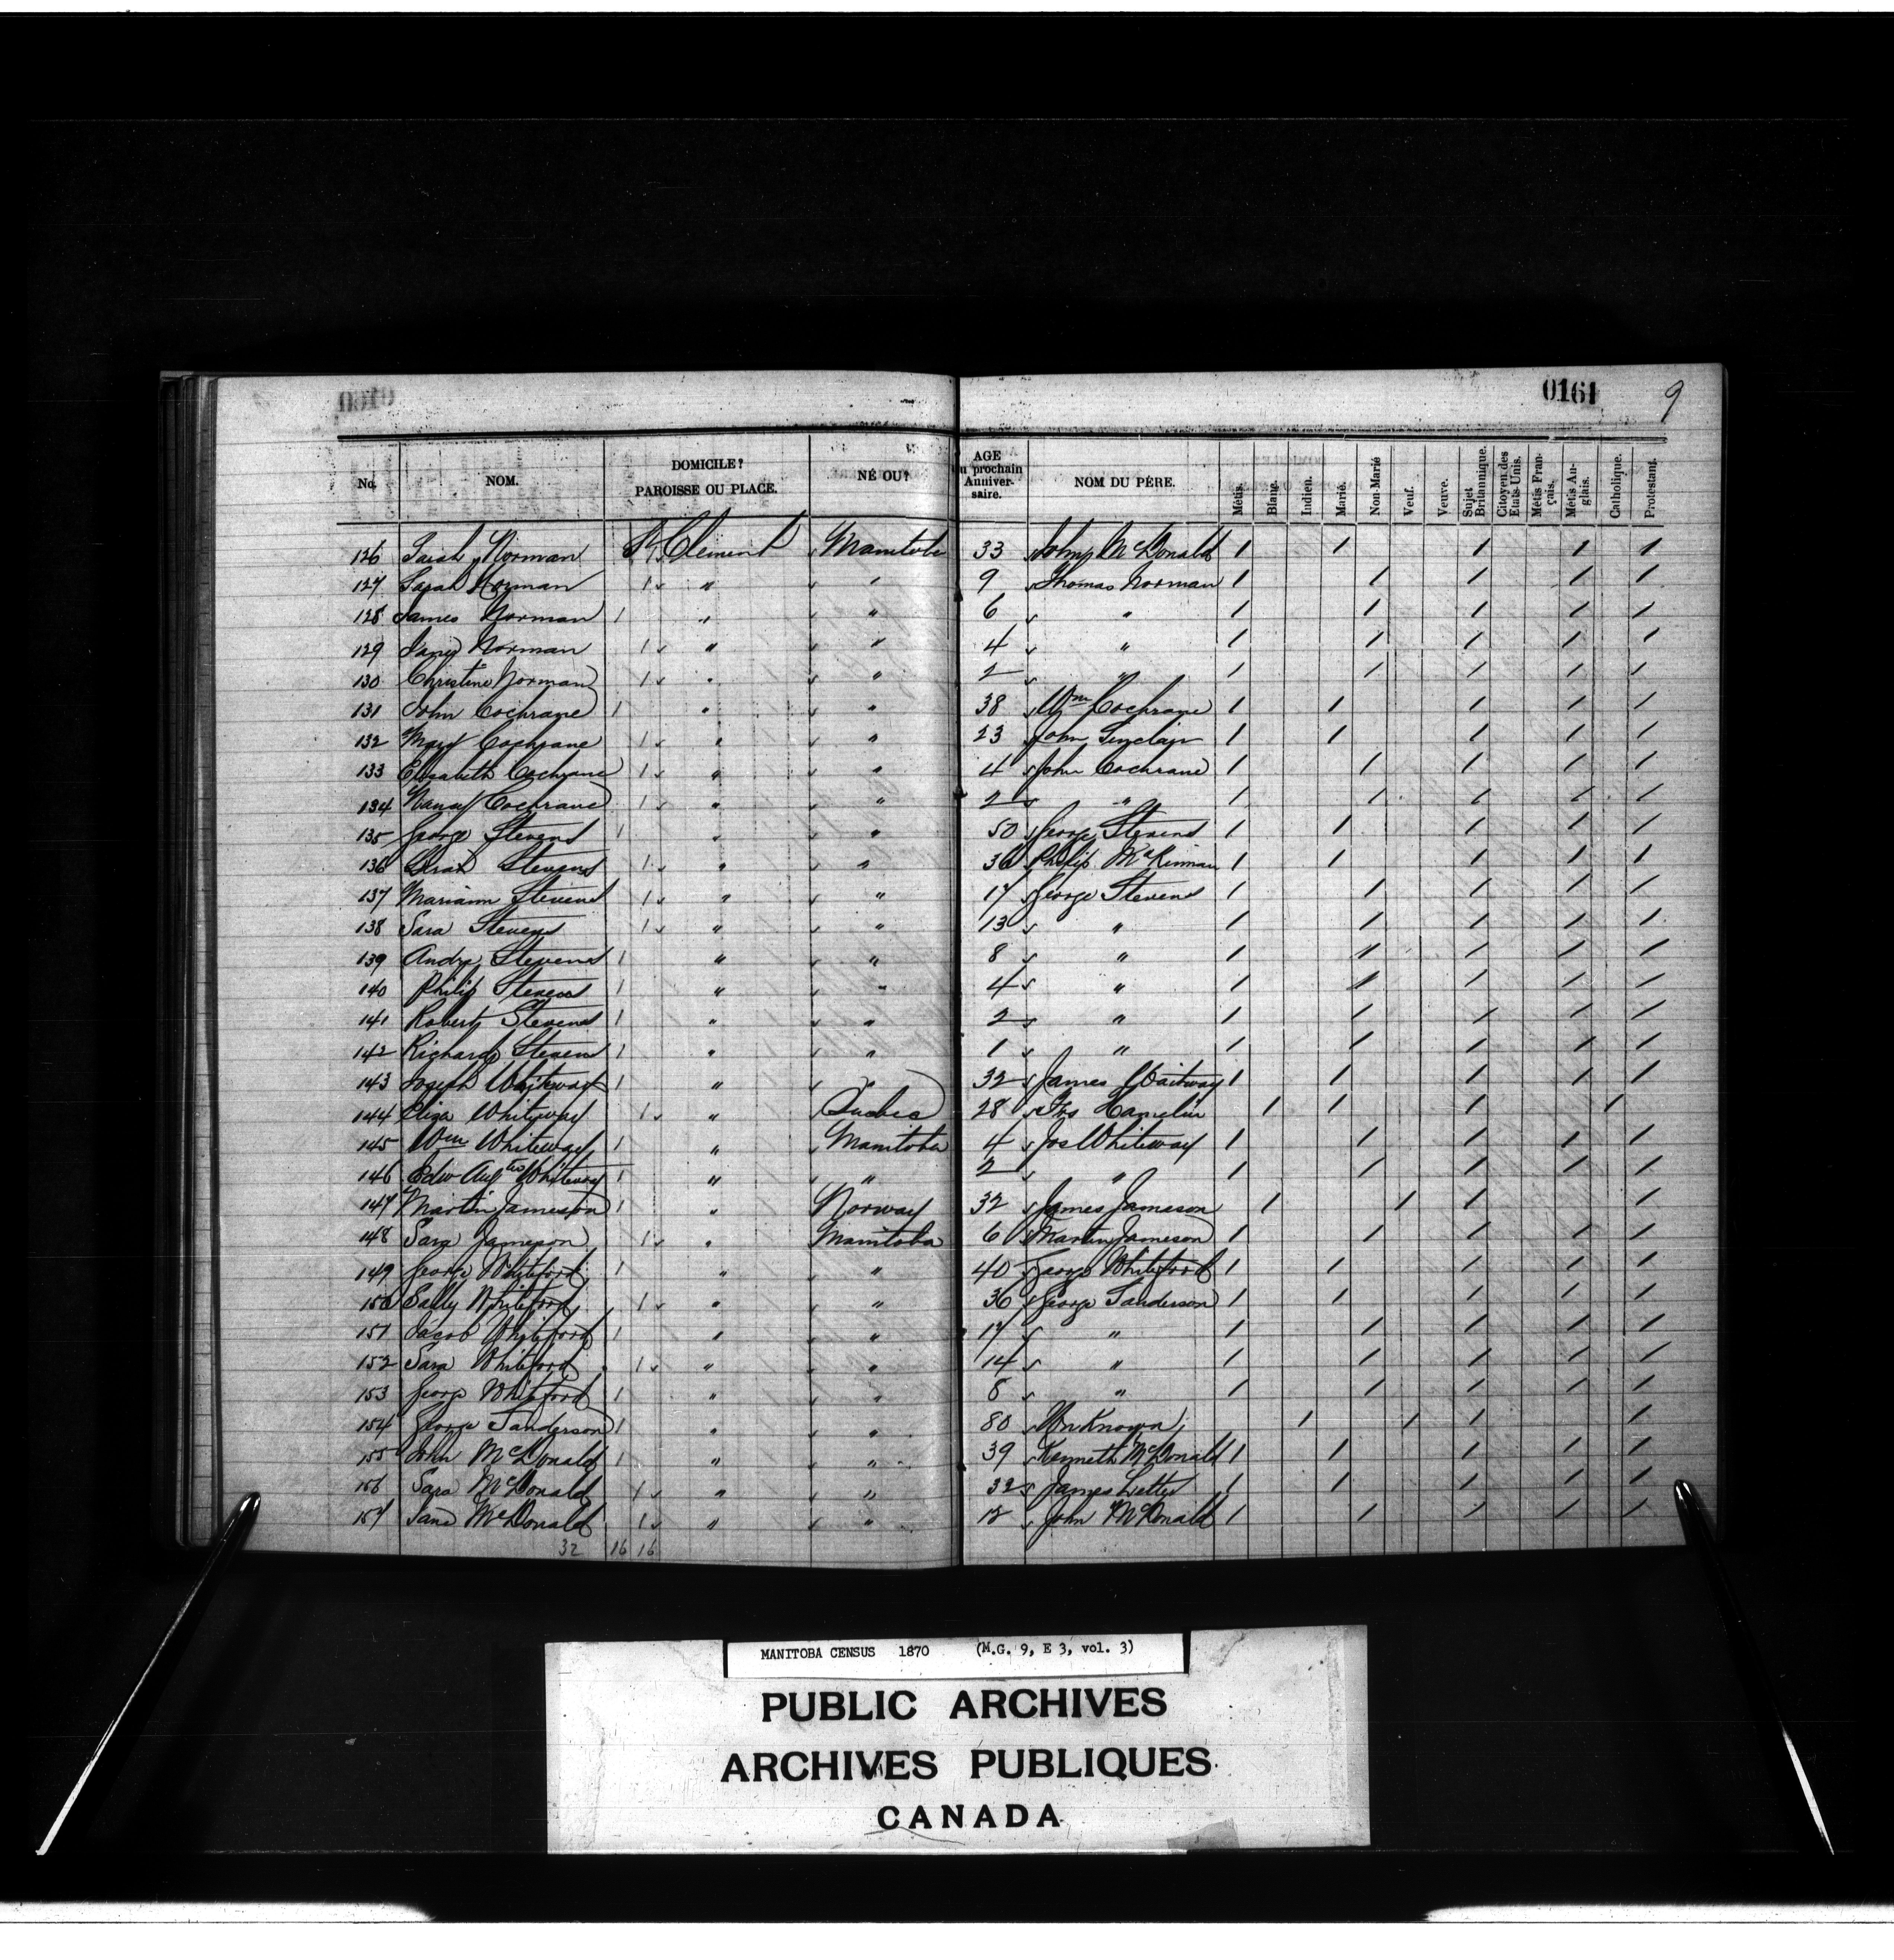 0161 9
No. NOM. DOMICILE? PAROISSE OU PLACE. NÉ OU? AGE au prochain Anniversaire. NOM DU PÈRE. Métis. Blanc. Indien. Marié. Non-Marié Veuf. Veuve. Sujet Britannique. Citoyen des Etats Unis. Métis Français. Métis Anglais. Catholique. Protestant.
126 Sarah Norman 1 St Clement Manitoba 33 John McDonald / / / / /
127 Sarah Norman 1 " " 9 Thomas Norman / / / / /
128 James Norman 1 " " 6 " / / / / /
129 Jane Norman 1 " " 4 " / / / / /
130 Christine Norman 1 " " 2 " / / / / /
131 John Cochrane 1 " " 38 Wm Cochrane / / / / /
132 Mary Cochrane 1 " " 23 John Sinclair / / / / /
133 Elisabeth Cochrane 1 " " 4 John Cochrane / / / / /
134 Nancy Cochrane 1 " " 2 " / / / / /
135 George Stevens 1 " " 50 George Stevens / / / / /
136 Stevens 1 " " 36 Philip McKinnan / / / / /
137 Mariann Stevens 1 " " 17 George Stevens / / / / /
138 Sara Stevens 1 " " 13 " / / / / /
139 Andw Stevens 1 " " 8 " / / / / /
140 Philip Stevens 1 " " 4 " / / / / /
141 Robert Stevens 1 " " 2 " / / / / /
142 Richard Stevens 1 " " 1 " / / / / /
143 Joseph Whiteway 1 " " 32 James Whitway / / / / /
144 Eliza Whiteway 1 " Quebec 28 Hamelin / / / /
145 Wm Whiteway 1 " Manitoba 4 Jos Whiteway / / / / /
146 Edw Augtus Whiteway 1 " " 2 " / / / / /
147 Martin Jameson 1 " Norway 32 James Jameson / / / /
148 Sara Jameson 1 " Manitoba 6 Martin Jameson / / / / /
149 George Whiteford 1 " " 40 George Whiteford / / / / /
150 Sally Whiteford 1 " " 36 George Sanderson / / / / /
151 Jacob Whiteford 1 " " 17 " / / / / /
152 Sara Whiteford 1 " " 14 " / / / / /
153 George Whiteford 1 " " " / / / / /
154 George Sanderson 1 " " 80 Unknown / / / /
155 John McDonald 1 " " 39 Kenneth McDonald / / / / /
156 Sara McDonald 1 " " 32 James / / / / /
157 Jane McDonald 1 " " 12 John McDonald / / / / /
32 16 16
MANITOBA CENSUS 1870 (M.G. 9, E 3, vol. 3)
PUBLIC ARCHIVES
ARCHIVES PUBLIQUES
CANADA